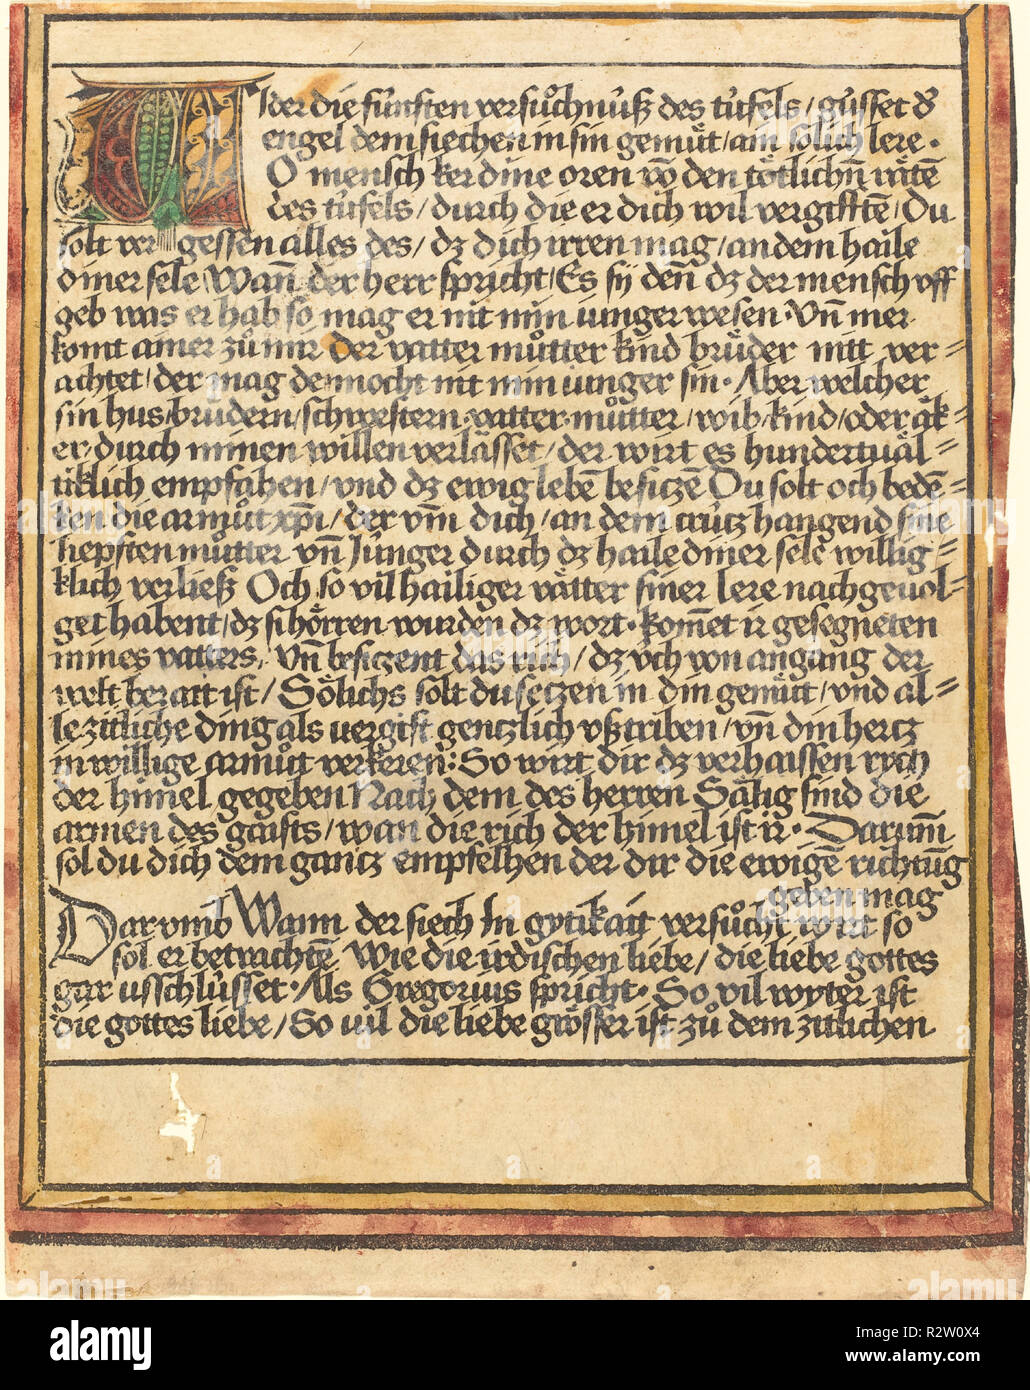 Wider die fúnften versuͦchnúß des túfels / gússet dˀ
engel dem siechen in sin gemuͤt / ain soͤlich lere ·
O mensch ker dine oren võ den toͤtlichñ raͤtẽ
des túfels / durch die er dich wil vergifftẽ / Du
solt vergessen alles des / dz dich irren mag / an dem haile
diner sele Wañ der herr spricht / Es sÿ deñ dz der mensch vff
geb was er hab so mag er nit min iunger wesen · Vñ mer
komt ainer zuͦ mir der vatter muͦtter kind bruͤder nitt ver=
achtet / der mag dennocht nit min iunger sin · Aber welcher
sin hus / brudern / schwestern · vatter · muͦtter / wib / kind / oder aͤk=
er / durch minen willen verlaͤsset / der wirt es hundertuaͤl=
tiklich empfahen / vnd dz ewig lebẽ besiczẽ Du solt och bedẽ=
ken die armuͦt xp̃i / der vm̃ dich / an dem crútz hangend sine
liepsten muͦtter vñ Júnger durch dz haile diner sele willig=
klich verließ Och so vil hailiger vaͤtter siner lere nach geuol=
get habent / dz si hoͤrren wurden dz wort · kom̃et ir gesegneten
mines vatters, Vñ besiczent das rich / dz v́ch von angang der
welt berait ist / Soͤlichs solt du setzen in din gemuͤtt / vnd al=
le zitliche ding als vergift gentzlich vßtriben / vñ din hertz
in willige armuͦtt verkeren: So wirt dir dz verhaissen rych
der himel gegeben Nach dem des herren Saͤlig sind die
armen des gaists / wan die rich der himel ist ir · Darum̃
sol du dich dem gantz empfelhen der dir die ewigẽ richtũg
geben mag
Dar vmb Wann der siech In gytikait versuͦcht wirt so
sol er betrachtẽ Wie die irdischen liebe / die liebe gottes
gar usschlússet · Als Gregorius spricht · So vil wyter ist
die gottes liebe / So vil die liebe groͤsser ist zuͦ dem zitlichen
alamy
R2W0X4
www.alamy.com